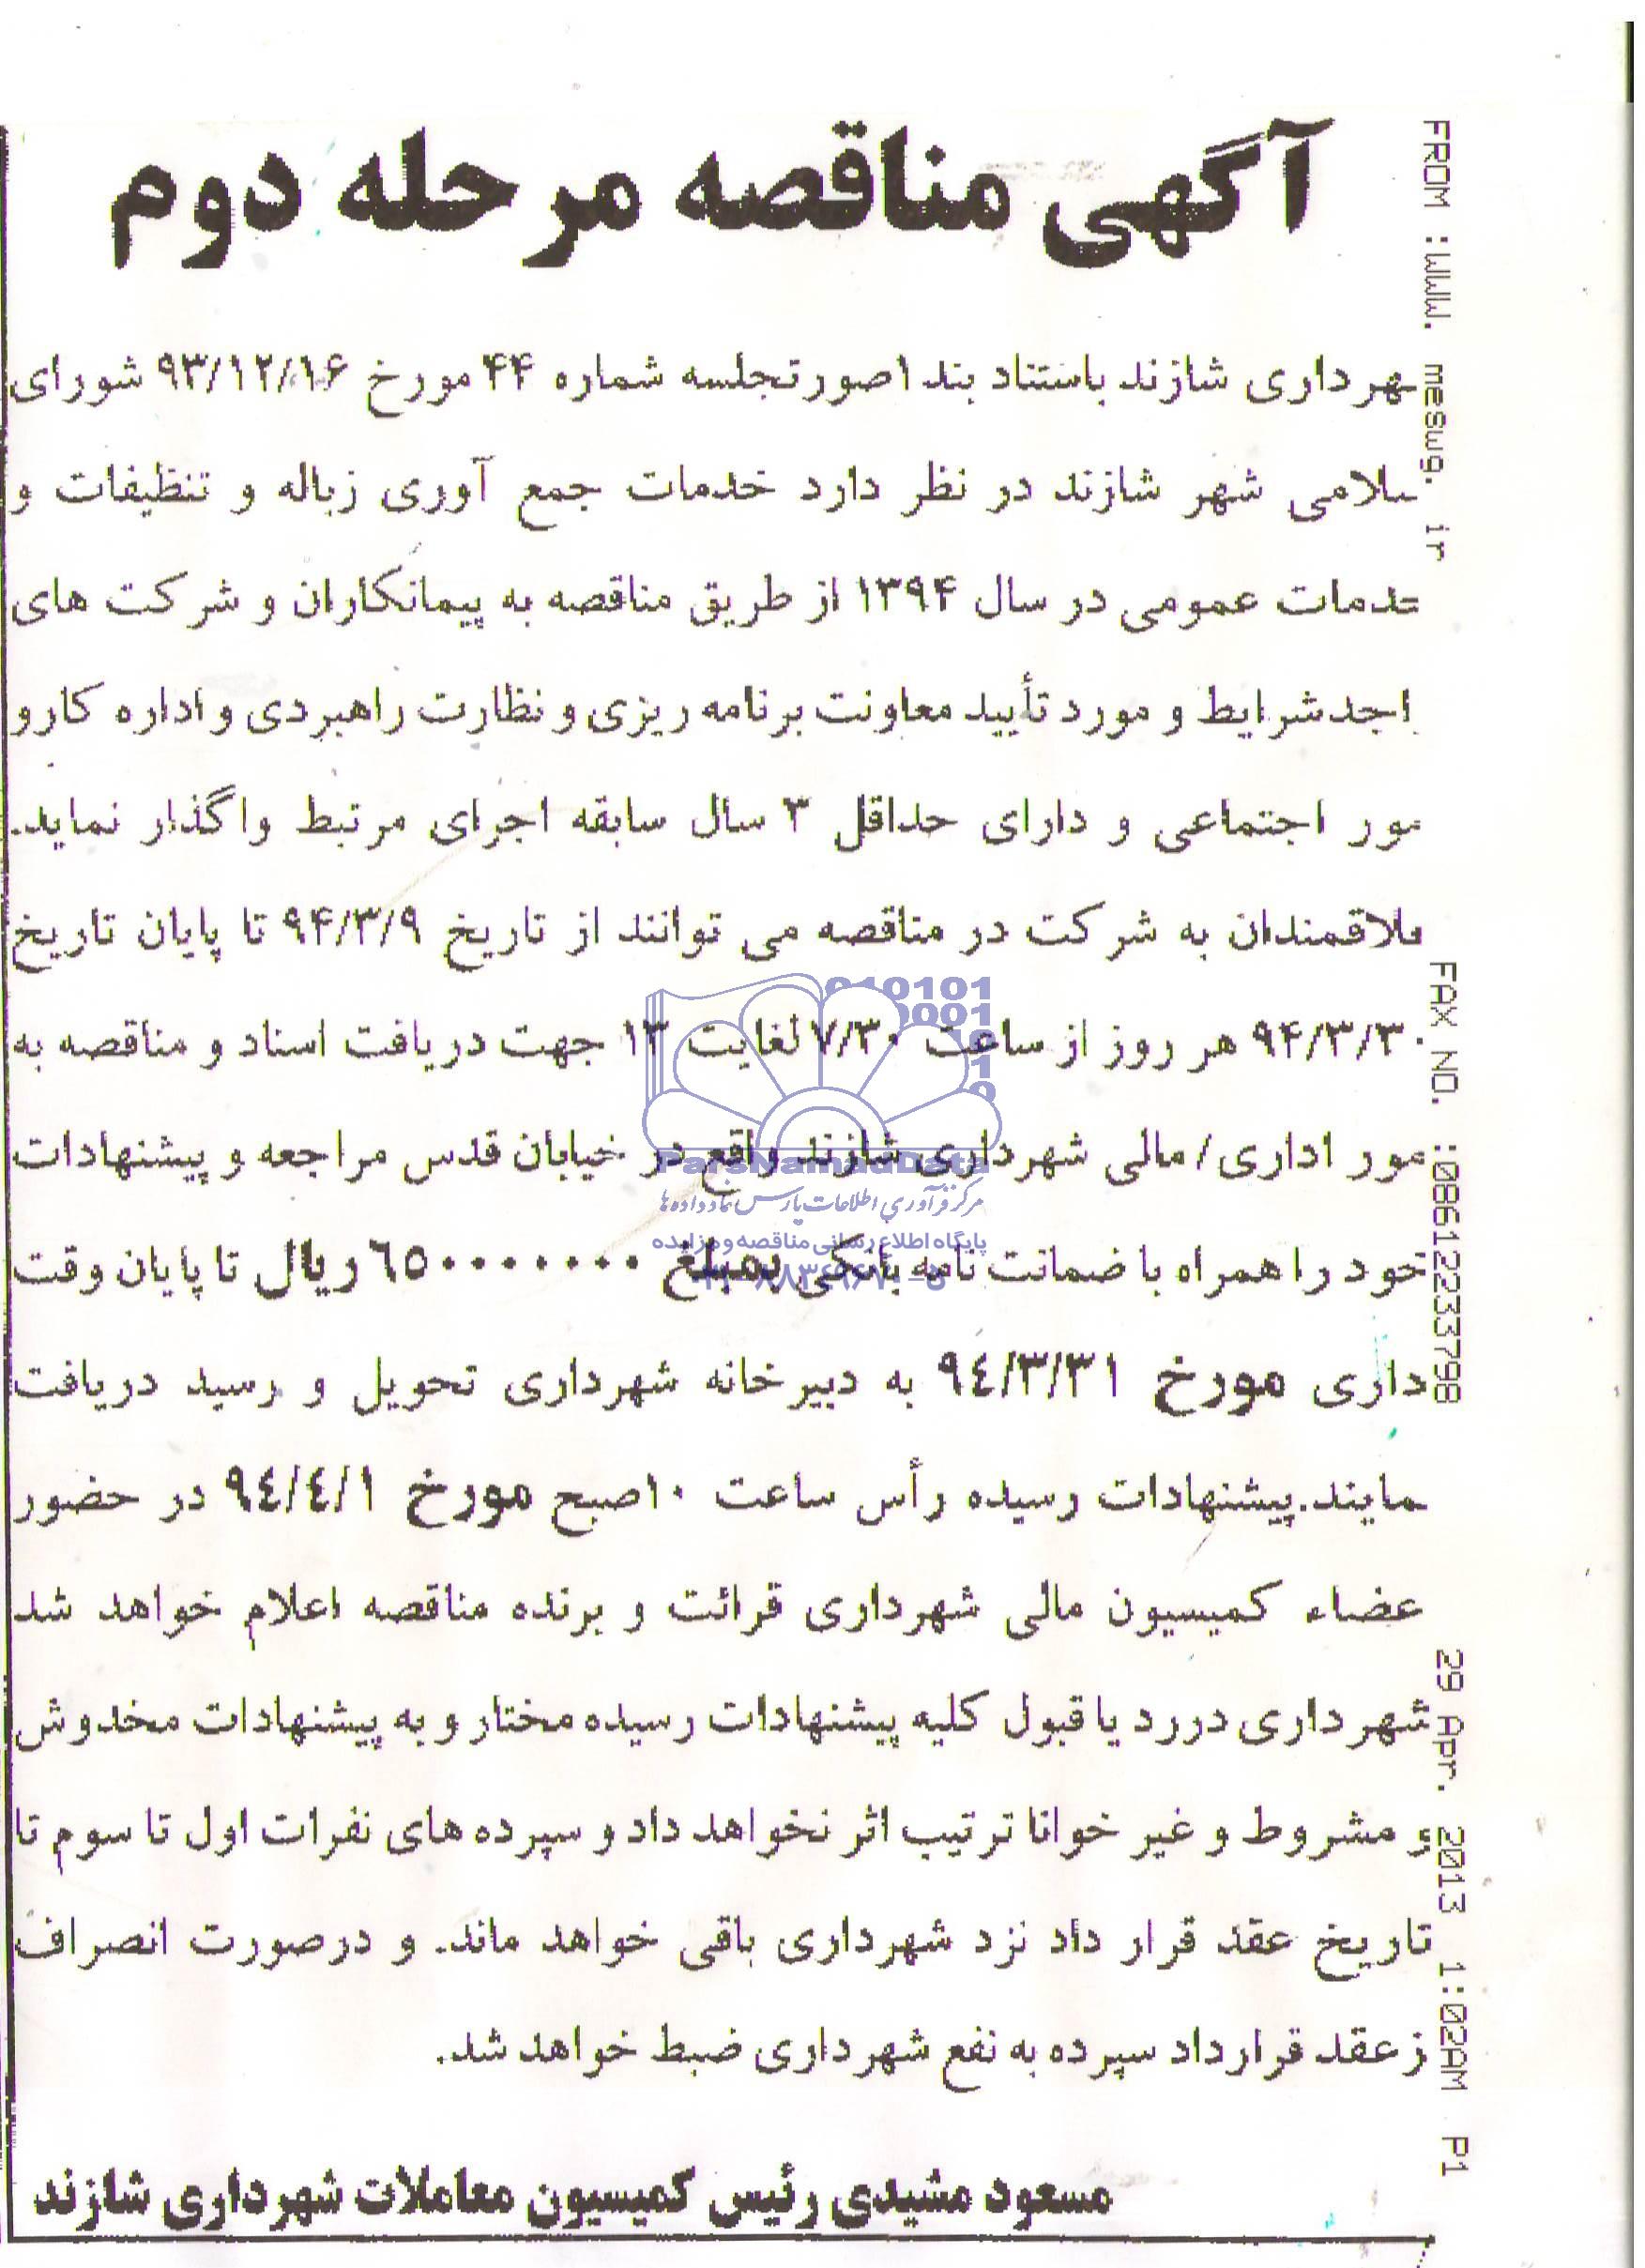 آگهی مناقصه مرحله دوم
شهرداری شازند باستناد بند ۱صورتجلسه شماره ۴۴ مورخ ۹۳/۱۲/۱۶ شورای
سلامی شهر شازند در نظر دارد خدمات جمع آوری زباله و تنظیفات و
خدمات عمومی در سال ۱۳۹۴ از طریق مناقصه به پیمانکاران و شرکت های
اجد شرایط و مورد تأیید معاونت برنامه ریزی و نظارت راهبردی و اداره کار و
مور اجتماعی و دارای حداقل ۳ سال سابقه اجرای مرتبط واگذار نماید.
علاقمندان به شرکت در مناقصه می توانند از تاریخ ۹۴/۳/۹ تا پایان تاریخ
۹۴/۳/۳۰ هر روز از ساعت ۷/۳۰ لغایت ۱۳ جهت دریافت اسناد و مناقصه به
مور اداری/مالی شهرداری شازند واقع در خیابان قدس مراجعه و پیشنهادات
خود را همراه با ضمانت نامه بانکی بمبلغ ۶۵۰۰۰۰۰۰۰۰ ریال تا پایان وقت
داری مورخ ۹٤/۳/۳۱ به دبیرخانه شهرداری تحویل و رسید دریافت
نمایند.پیشنهادات رسیده رأس ساعت ۱۰صبح مورخ ۹٤/٤/۱ در حضور
عضاء کمیسیون مالی شهرداری قرائت و برنده مناقصه اعلام خواهد شد
شهرداری در رد یا قبول کلیه پیشنهادات رسیده مختار و به پیشنهادات مخدوش
و مشروط و غیر خوانا ترتیب اثر نخواهد داد و سپرده های نفرات اول تا سوم تا
تاریخ عقد قرار داد نزد شهرداری باقی خواهد ماند. و درصورت انصراف
ز عقد قرارداد سپرده به نفع شهرداری ضبط خواهد شد.
مسعود مشیدی رئیس کمیسیون معاملات شهرداری شازند
FROM :www. meswg. ir FAX NO. :08612233798 29 Apr. 2013 1:02AM P1
ParsNamadData
مرکز فرآوری اطلاعات پارس نماد داده ها
پایگاه اطلاع رسانی مناقصه و مزایده